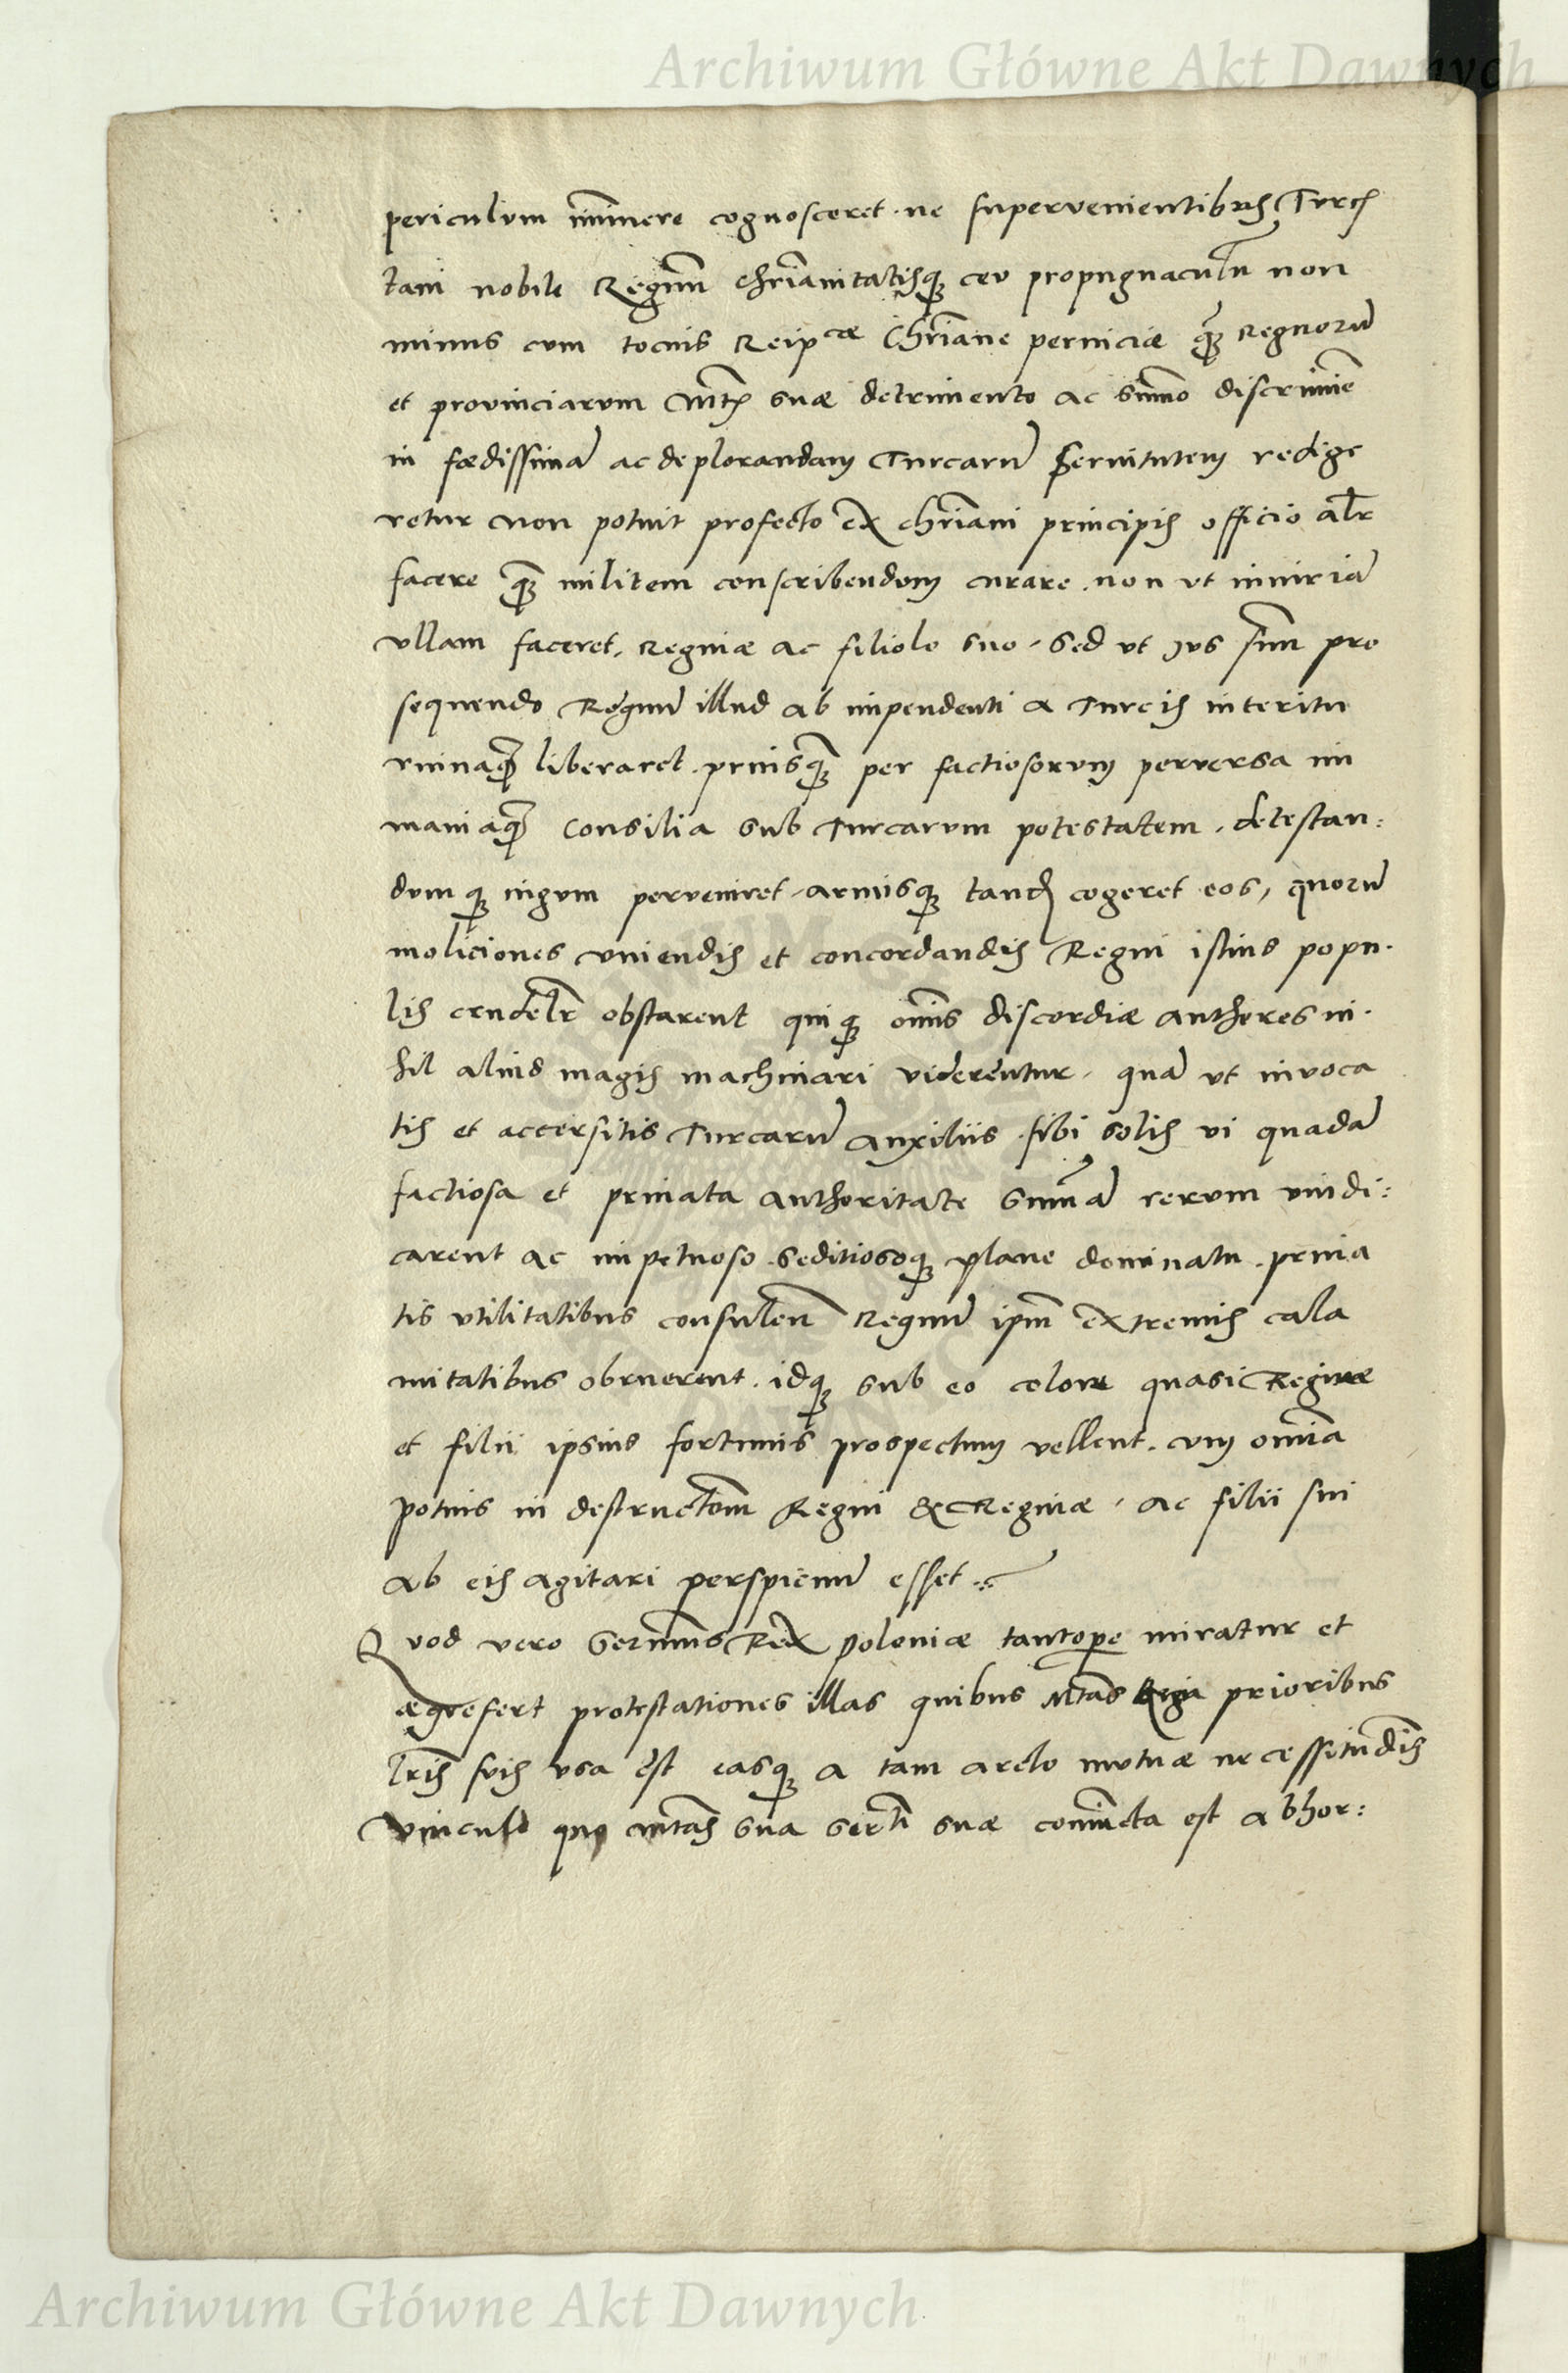 Archiwum Główne Akt Dawnych
periculum im̃inere cognosceret. ne supervenientibus Turcis
tam nobile Regnum chr̃ianitatisq3 ceu propugnaculũ non
minus cum tocius Reip^cae Chr̃iane perniciæ q̃3 Regnorũ
et provinciarum Mtis suæ detrimento ac summo discrimine
in fœdissimã ac deplorandam Turcarũ Servitutem redige
retur non potuit profecto ex chr̃iani principis officio alr̃
facere q̃3 militem conscribendum curare. non ut iniuriã
ullam faceret, Reginæ ac filiolo suo, sed ut ius suũ pro
sequendo Regnũ illud ab impendenti a Turcis interitu
ruinaq3 liberaret. priusq̃3 per factiosorum perversa im
maniaq3 Consilia sub Turcarum potestatem, detestan:
dumq3 iugum perveniret, armisq3 tandẽ cogeret eos, quorũ
moliciones uniendis et concordandis Regni istius popu.
lis crudelr̃ obstarent quiq3 om̃is discordiæ authores ni.
hil aliud magis machinari viderentur, quã ut invoca
tis et accersitis Turcarũ auxiliis. sibi solis vi quadã
factiosa et privata authoritate sum̃ã rerum vindi:
carent ac impetuoso. seditiosoq3 plane dominatu. priva
tis utilitatibus consulen̄ Regnũ ipm̃ extremis cala
mitatibus obruerent. idq3 sub eo colore quasi Reginæ
et filii ipsius fortunis prospectum vellent. cum om̃ia
potius in destructõm Regni & Reginæ, ac filii sui
ab eis agitari perspicuũ esset.
Quod vero Serm̃us Rex Poloniæ tantopere miratur et
ægrefert protestationes illas quibus Mtas Regia prioribus
lr̃is suis usa est easq3 a tam arcto mutuæ necessitudĩs
vinculo quo Mtas sua Serti suæ coniũcta est abhor:
Archiwum Główne Akt Dawnych